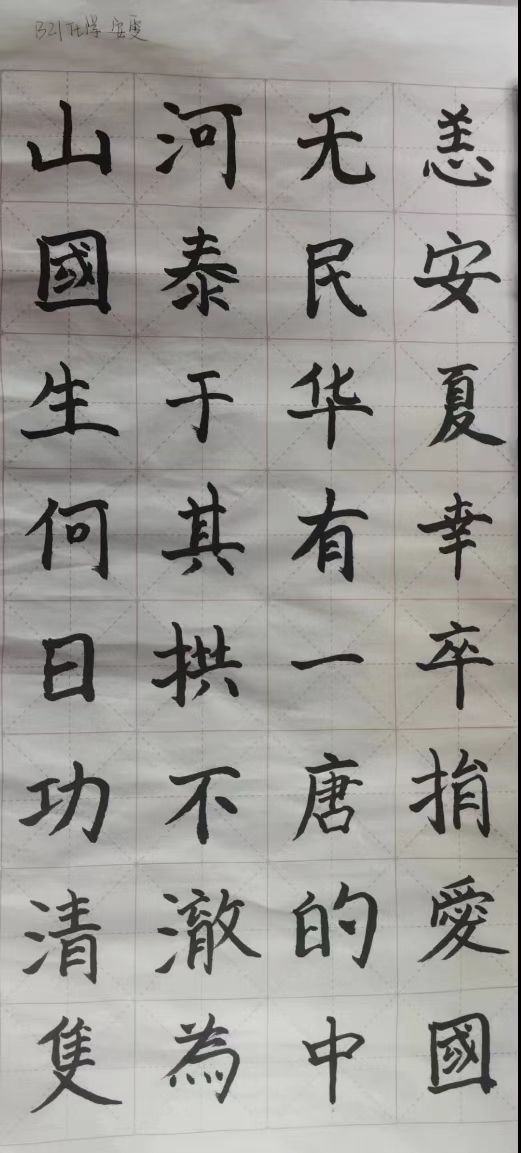 B21
山河无恙
國泰民安
生于华夏
何其有幸
日拱一卒
功不唐捐
清澈的愛
隻為中國